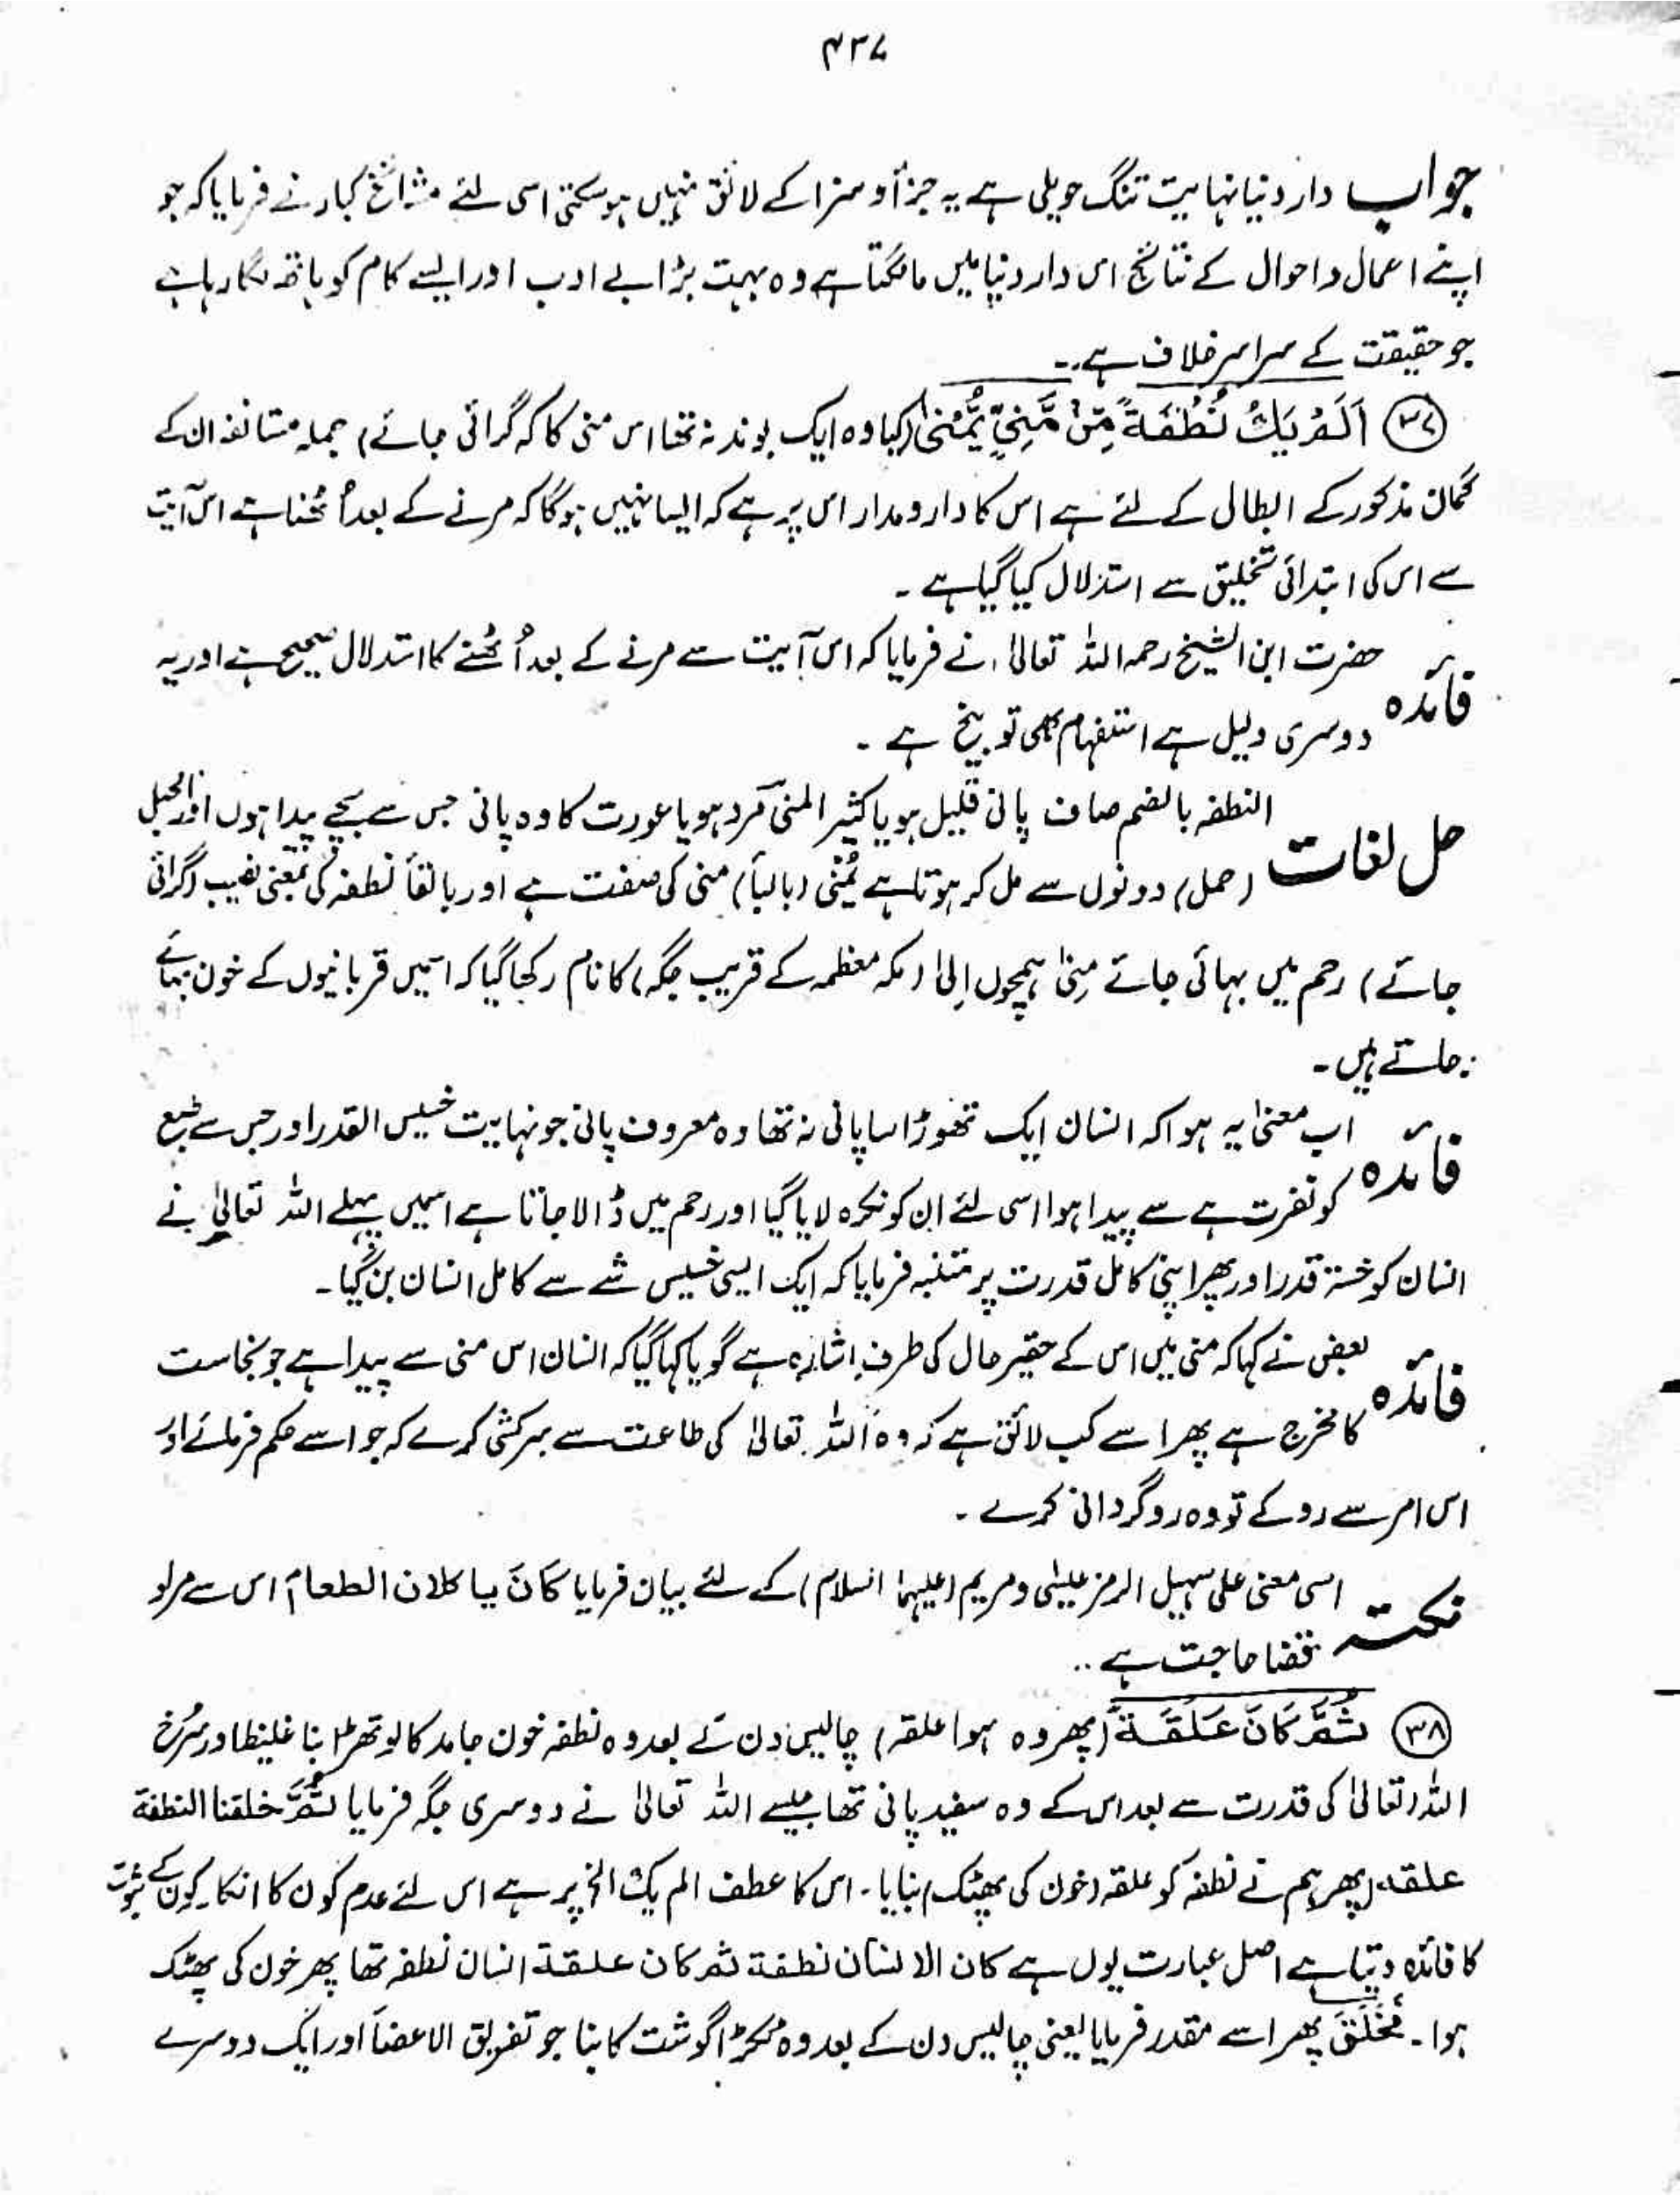 ۴۳۷
جواب دار دنیا نہایت تنگ حویلی ہے یہ جزأ و سزا کے لائق نہیں ہو سکتی اسی لئے مشائخ کبار نے فرمایا کہ جو
اپنے اعمال و احوال کے نتائج اس دار دنیا میں مانگتا ہے وہ بہت بڑا بے ادب اور ایسے کام کو ہاتھ لگا رہا ہے
جو حقیقت کے سراسر خلاف ہے۔۔
۳۷ اَلَمْ یَكُ نُطْفَةً مِّنْ مَّنِیٍّ یُّمْنٰى (کیا وہ ایک بوند نہ تھا اس منی کا کہ گرائی جائے) جملہ مستانفہ ان کے
گمان مذکور کے ابطال کے لئے ہے اس کا دار و مدار اس پر ہے کہ ایسا نہیں ہوگا کہ مرنے کے بعد اُٹھنا ہے اس آیت
سے اس کی ابتدائی تخلیق سے استدلال کیا گیا ہے ۔
فائدہ حضرت ابن الشیخ رحمہ اللہ تعالیٰ نے فرمایا کہ اس آیت سے مرنے کے بعد اُٹھنے کا استدلال صحیح ہے اور یہ
دوسری دلیل ہے استفہام بھی توبیخ ہے ۔
حل لغات النطفہ بالضم صاف پانی قلیل ہو یا کثیر المنی مرد ہو یا عورت کا وہ پانی جس سے بچے پیدا ہوں اور الحبل
(حمل) دونوں سے مل کر ہوتا ہے یُمْنٰی (بالیأ) منی کی صفت ہے اور بالتأ نطفہ کی بمعنی نصیب (گرائی
جائے) رحم میں بہائی جائے مِنیٰ ہمچوں اِلیٰ (مکہ معظمہ کے قریب جگہ) کا نام رکھا گیا کہ اسمیں قربانیوں کے خون بہائے
جاتے ہیں ۔
فائدہ اب معنیٰ یہ ہوا کہ انسان ایک تھوڑا سا پانی نہ تھا وہ معروف پانی جو نہایت خسیس القدر اور جس سے طبع
کو نفرت ہے سے پیدا ہوا اسی لئے ان کو نکرہ لایا گیا اور رحم میں ڈالا جاتا ہے اسمیں پہلے اللہ تعالیٰ نے
انسان کو خستہ قدر اور پھر اپنی کامل قدرت پر متنبہ فرمایا کہ ایک ایسی خسیس شے سے کامل انسان بن گیا ۔
فائدہ بعض نے کہا کہ منی میں اس کے حقیر حال کی طرف اشارہ ہے گویا کہا گیا کہ انسان اس منی سے پیدا ہے جو نجاست
کا مخرج ہے پھر اسے کب لائق ہے کہ وہ اللہ تعالیٰ کی طاعت سے سرکشی کرے کہ جو اسے حکم فرمائے اور
اس امر سے روکے تو وہ روگردانی کرے ۔
نکتہ اسی معنی علی سبیل الرمز عیسٰی و مریم (علیہما السلام) کے لئے بیان فرمایا کانَ یا کلان الطعام اس سے مراد
قضا حاجت ہے ۔۔
۳۸ ثُمَّ كَانَ عَلَقَةً (پھر وہ ہوا علقہ) چالیس دن کے بعد وہ نطفہ خون جامد کا لوتھڑا بنا غلیظ اور سُرخ
اللہ تعالیٰ کی قدرت سے بعد اس کے وہ سفید پانی تھا جیسے اللہ تعالیٰ نے دوسری جگہ فرمایا ثُمَّ خلقنا النطفة
علقہ (پھر ہم نے نطفہ کو علقہ (خون کی پھٹک) بنایا ۔ اس کا عطف الم یک الخ پر ہے اس لئے عدم کون کا انکار کون کے ثبوت
کا فائدہ دیتا ہے اصل عبارت یوں ہے کان الانسان نطفة ثم کان علقة انسان نطفہ تھا پھر خون کی پھٹک
ہوا ۔ فَخَلَقَ پھر اسے مقدر فرمایا یعنی چالیس دن کے بعد وہ ٹکڑا گوشت کا بنا جو تفریق الاعضأ اور ایک دوسرے